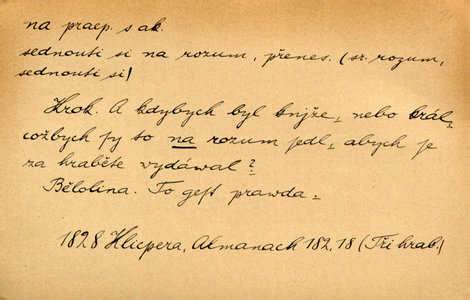 na praep. s ak.
sednouti si na rozum, přenes. (sr. rozum,
sednouti si)
Krok. A kdybych byl knjže, nebo král,
cožbych gy to na rozum jedl, abych je
za hraběte vydáwal?
Bělolina. To gest prawda.
1828 Klicpera, Almanach 182, 18 (Tři hrab.)